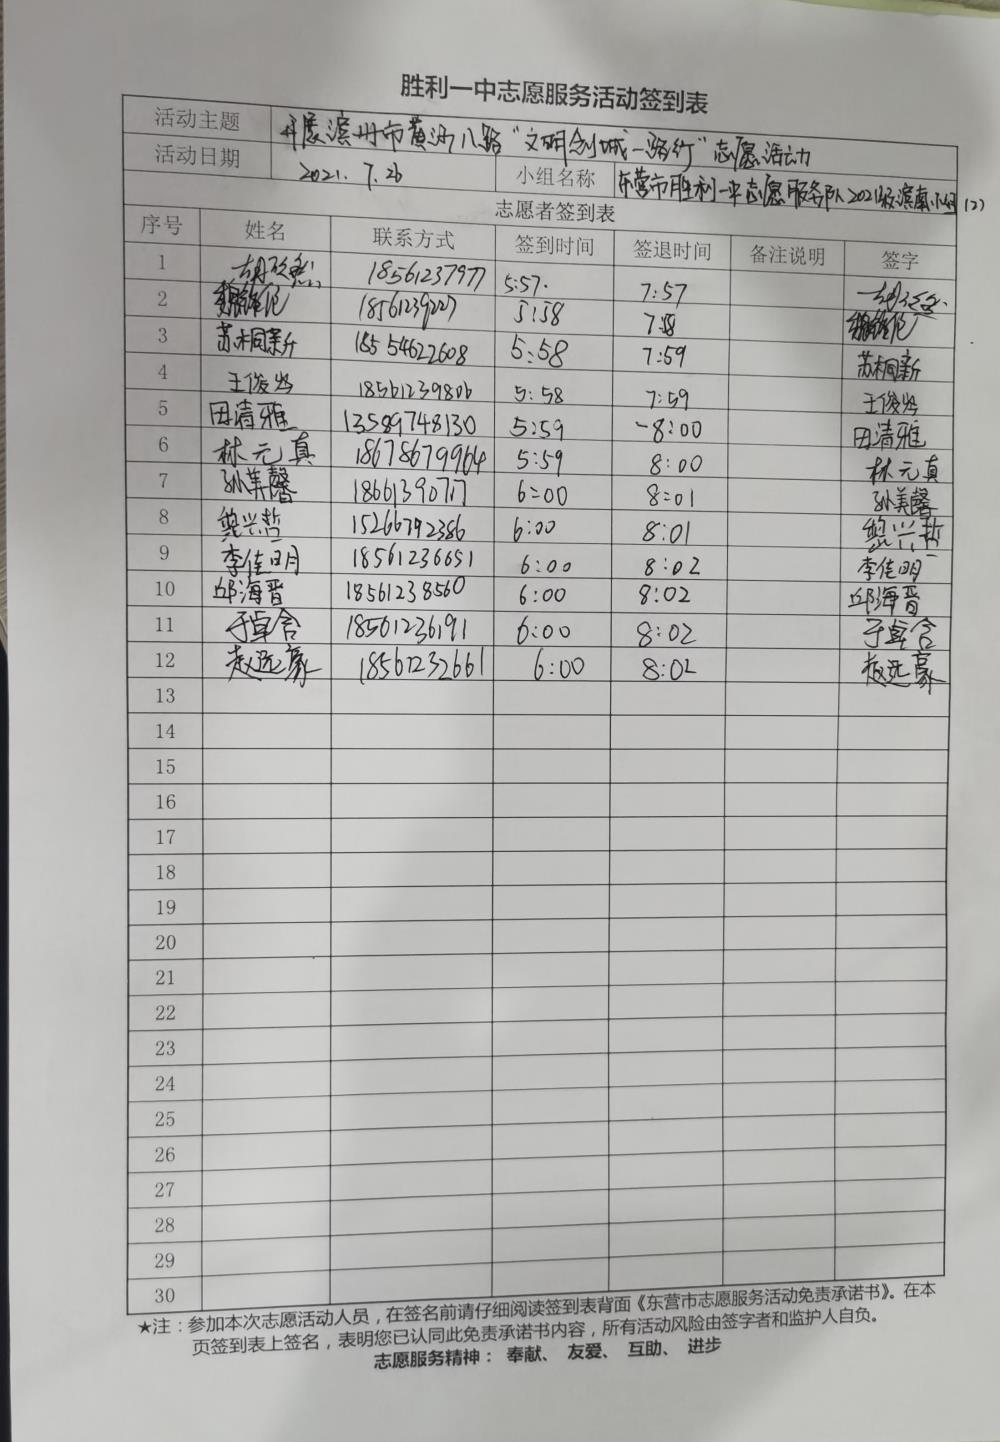 胜利一中志愿服务活动签到表
活动主题 开展滨州市黄河八路“文明创城一路行”志愿活动
活动日期 2021. 7. 26 小组名称 东营市胜利一中志愿服务队2021级滨南小组(2)
志愿者签到表
序号 姓名 联系方式 签到时间 签退时间 备注说明 签字
1 18561237977 5:57. 7:57
2 18561239227 5:58 7:58
3 苏桐新 18554622608 5:58 7:59 苏桐新
4 王俊 18561239806 5:58 7:59 王俊
5 田清雅 13589748130 5:59 8:00 田清雅
6 林元真 18678679964 5:59 8:00 林元真
7 孙美馨 18661390717 6:00 8:01 孙美馨
8 兴哲 15266792386 6:00 8:01 兴哲
9 李佳明 18561236651 6:00 8:02 李佳明
10 邱海晋 18561238560 6:00 8:02 邱海晋
11 于卓含 18561236191 6:00 8:02 于卓含
12 赵远豪 18561232661 6:00 8:02 赵远豪
13
14
15
16
17
18
19
20
21
22
23
24
25
26
27
28
29
30
★注：参加本次志愿活动人员，在签名前请仔细阅读签到表背面《东营市志愿服务活动免责承诺书》。在本
页签到表上签名，表明您已认同此免责承诺书内容，所有活动风险由签字者和监护人自负。
志愿服务精神： 奉献、 友爱、 互助、 进步